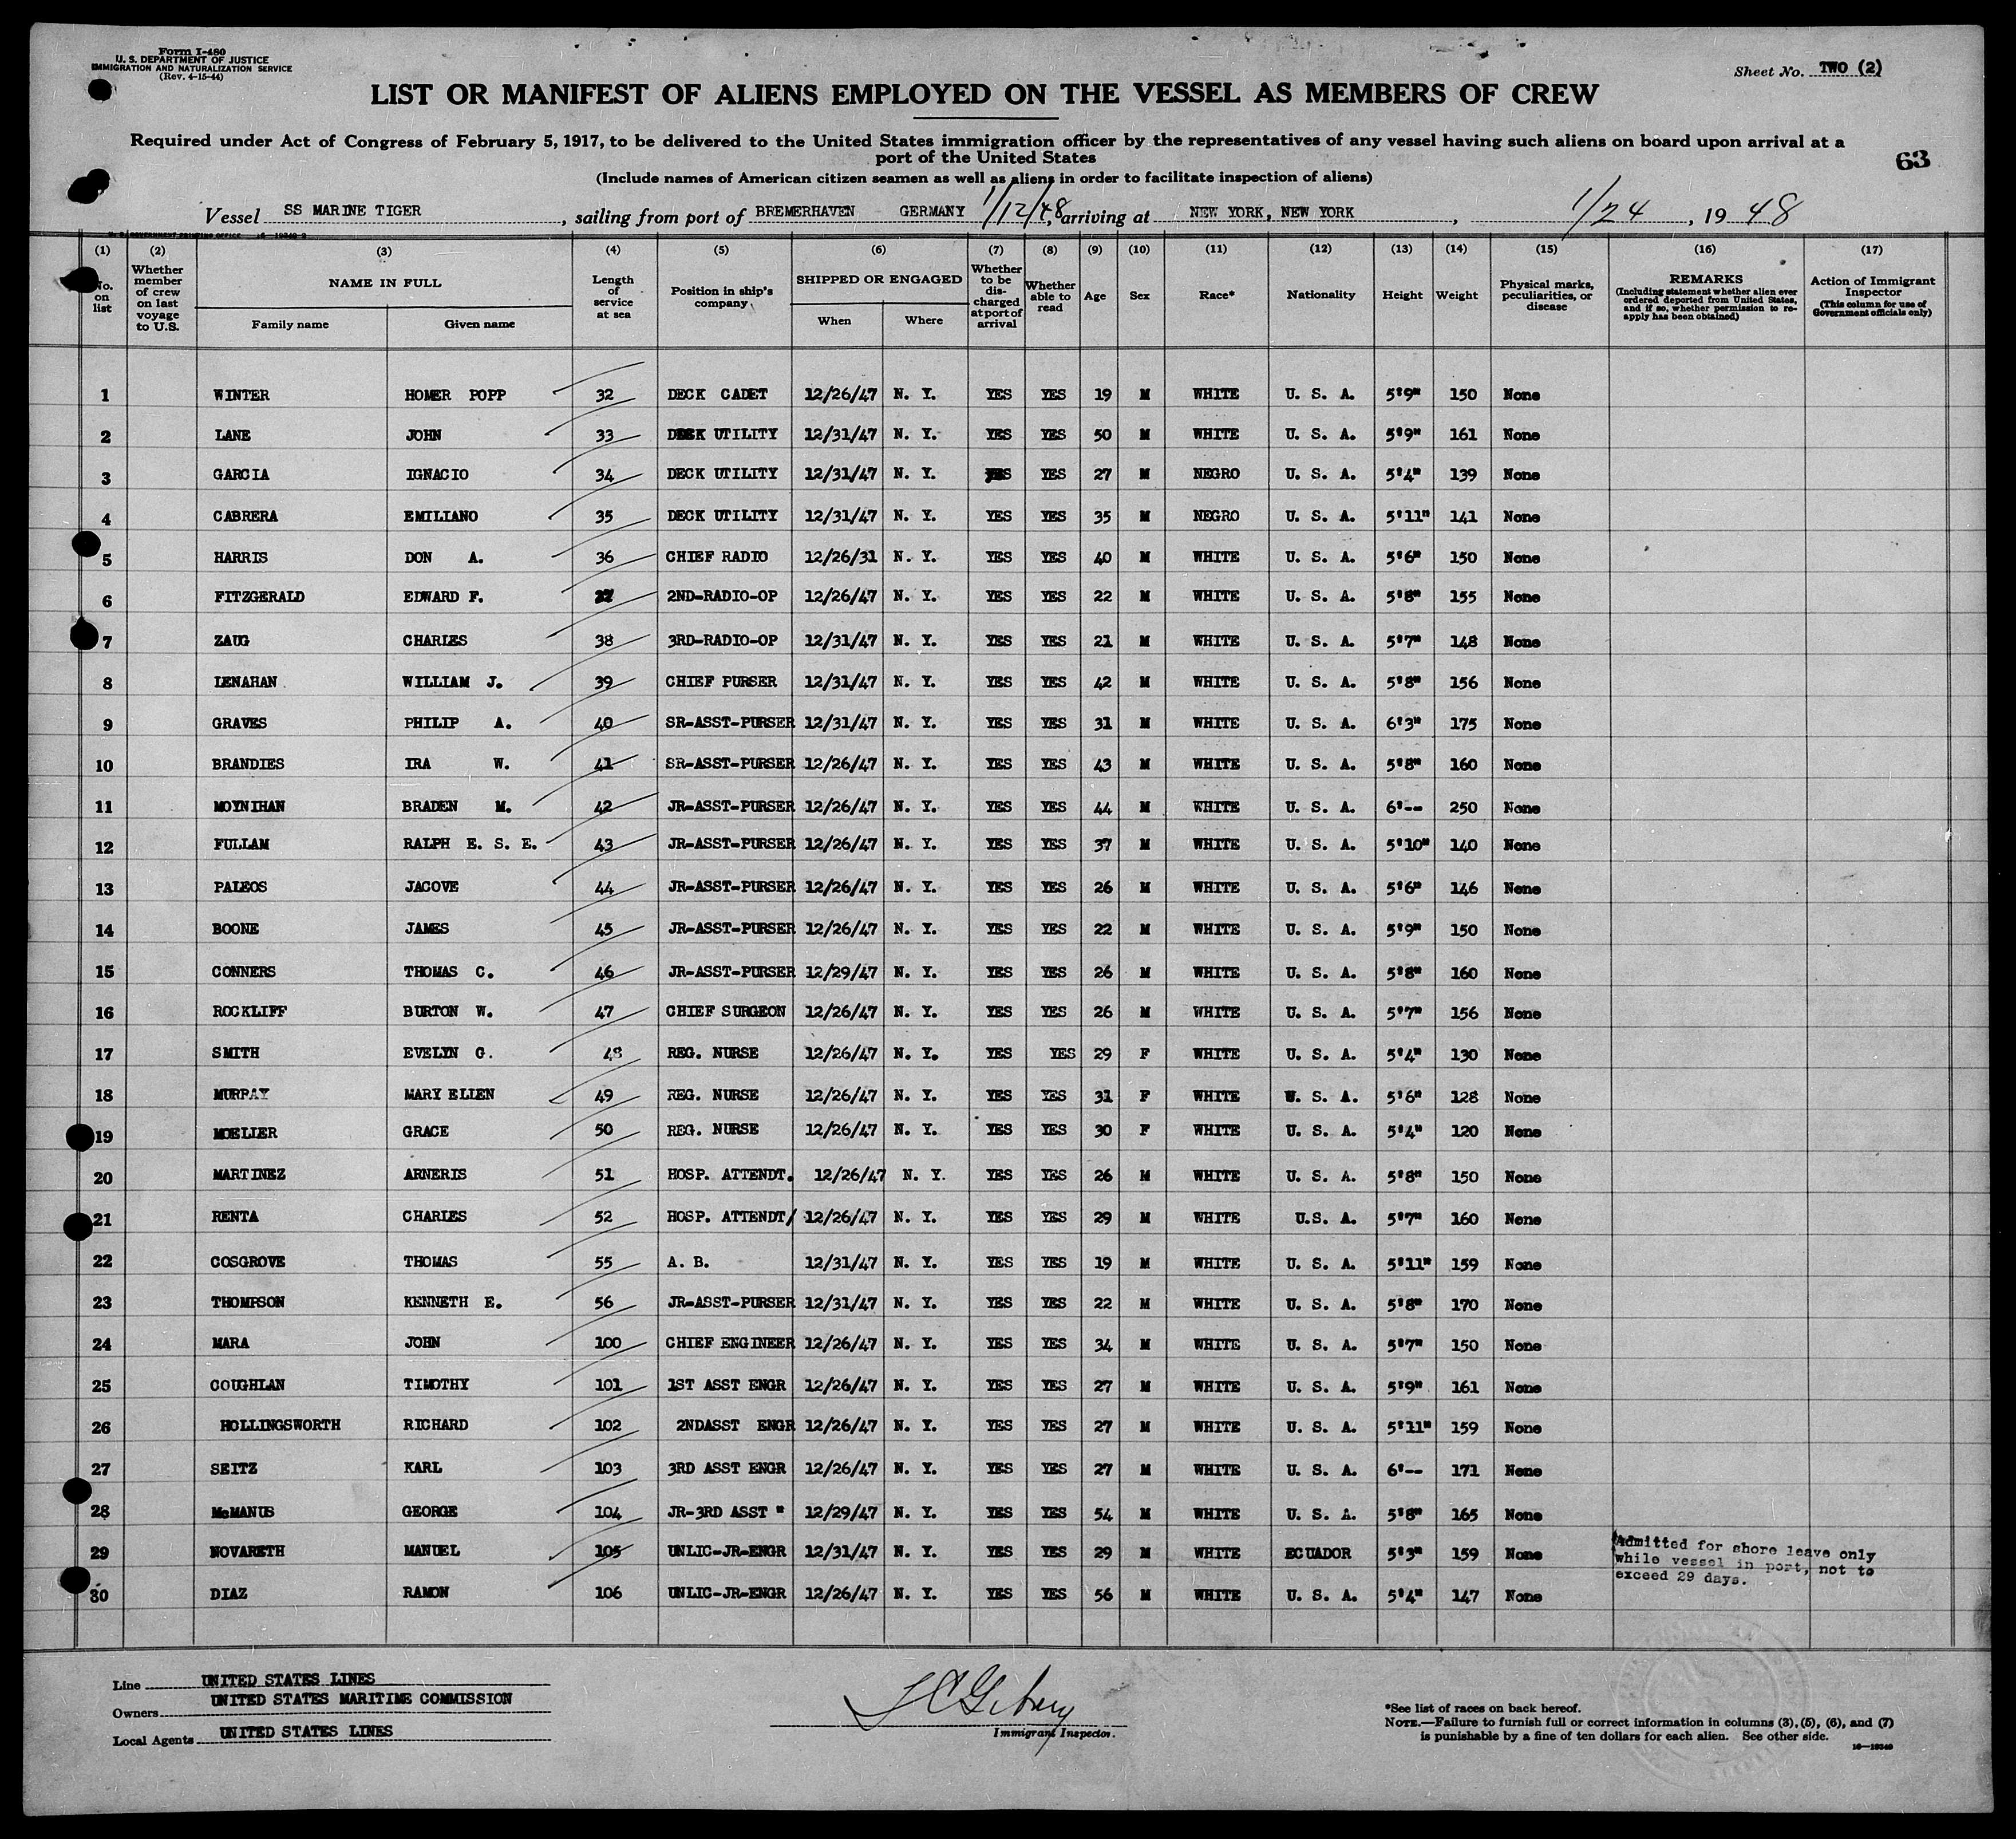 Form I-480
U. S. DEPARTMENT OF JUSTICE
IMMIGRATION AND NATURALIZATION SERVICE
(Rev. 4-15-44)
Sheet No. TWO (2)
LIST OR MANIFEST OF ALIENS EMPLOYED ON THE VESSEL AS MEMBERS OF CREW
Required under Act of Congress of February 5, 1917, to be delivered to the United States immigration officer by the representatives of any vessel having such aliens on board upon arrival at a
port of the United States
63
(Include names of American citizen seamen as well as aliens in order to facilitate inspection of aliens)
Vessel SS MARINE TIGER, sailing from port of BREMERHAVEN GERMANY 1/12/48, arriving at NEW YORK, NEW YORK, 1/24, 19 48
(1) (2) (3) (4) (5) (6) (7) (8) (9) (10) (11) (12) (13) (14) (15) (16) (17)
No. on list
Whether member of crew on last voyage to U.S.
NAME IN FULL
Family name Given name
Length of service at sea
Position in ship's company
SHIPPED OR ENGAGED
When Where
Whether to be discharged at port of arrival
Whether able to read
Age
Sex
Race*
Nationality
Height
Weight
Physical marks, peculiarities, or disease
REMARKS
(Including statement whether alien ever ordered deported from United States, and if so, whether permission to re-apply has been obtained)
Action of Immigrant Inspector
(This column for use of Government officials only)
1 WINTER HOMER POPP 32 DECK CADET 12/26/47 N. Y. YES YES 19 M WHITE U. S. A. 5'9" 150 None
2 LANE JOHN 33 DECK UTILITY 12/31/47 N. Y. YES YES 50 M WHITE U. S. A. 5'9" 161 None
3 GARCIA IGNACIO 34 DECK UTILITY 12/31/47 N. Y. YES YES 27 M NEGRO U. S. A. 5'4" 139 None
4 CABRERA EMILIANO 35 DECK UTILITY 12/31/47 N. Y. YES YES 35 M NEGRO U. S. A. 5'11" 141 None
5 HARRIS DON A. 36 CHIEF RADIO 12/26/31 N. Y. YES YES 40 M WHITE U. S. A. 5'6" 150 None
6 FITZGERALD EDWARD F. 37 2ND-RADIO-OP 12/26/47 N. Y. YES YES 22 M WHITE U. S. A. 5'8" 155 None
7 ZAUG CHARLES 38 3RD-RADIO-OP 12/31/47 N. Y. YES YES 21 M WHITE U. S. A. 5'7" 148 None
8 LENAHAN WILLIAM J. 39 CHIEF PURSER 12/31/47 N. Y. YES YES 42 M WHITE U. S. A. 5'8" 156 None
9 GRAVES PHILIP A. 40 SR-ASST-PURSER 12/31/47 N. Y. YES YES 31 M WHITE U. S. A. 6'3" 175 None
10 BRANDIES IRA W. 41 SR-ASST-PURSER 12/26/47 N. Y. YES YES 43 M WHITE U. S. A. 5'8" 160 None
11 MOYNIHAN BRADEN M. 42 JR-ASST-PURSER 12/26/47 N. Y. YES YES 44 M WHITE U. S. A. 6'-- 250 None
12 FULLAM RALPH E. S. E. 43 JR-ASST-PURSER 12/26/47 N. Y. YES YES 37 M WHITE U. S. A. 5'10" 140 None
13 PALEOS JACOVE 44 JR-ASST-PURSER 12/26/47 N. Y. YES YES 26 M WHITE U. S. A. 5'6" 146 None
14 BOONE JAMES 45 JR-ASST-PURSER 12/26/47 N. Y. YES YES 22 M WHITE U. S. A. 5'9" 150 None
15 CONNERS THOMAS C. 46 JR-ASST-PURSER 12/29/47 N. Y. YES YES 26 M WHITE U. S. A. 5'8" 160 None
16 ROCKLIFF BURTON W. 47 CHIEF SURGEON 12/26/47 N. Y. YES YES 26 M WHITE U. S. A. 5'7" 156 None
17 SMITH EVELYN G. 48 REG. NURSE 12/26/47 N. Y. YES YES 29 F WHITE U. S. A. 5'4" 130 None
18 MURPAY MARY ELLEN 49 REG. NURSE 12/26/47 N. Y. YES YES 31 F WHITE U. S. A. 5'6" 128 None
19 MOELLER GRACE 50 REG. NURSE 12/26/47 N. Y. YES YES 30 F WHITE U. S. A. 5'4" 120 None
20 MARTINEZ ARNERIS 51 HOSP. ATTENDT. 12/26/47 N. Y. YES YES 26 M WHITE U. S. A. 5'8" 150 None
21 RENTA CHARLES 52 HOSP. ATTENDT/ 12/26/47 N. Y. YES YES 29 M WHITE U.S. A. 5'7" 160 None
22 COSGROVE THOMAS 55 A. B. 12/31/47 N. Y. YES YES 19 M WHITE U. S. A. 5'11" 159 None
23 THOMPSON KENNETH E. 56 JR-ASST-PURSER 12/31/47 N. Y. YES YES 22 M WHITE U. S. A. 5'8" 170 None
24 MARA JOHN 100 CHIEF ENGINEER 12/26/47 N. Y. YES YES 34 M WHITE U. S. A. 5'7" 150 None
25 COUGHLAN TIMOTHY 101 1ST ASST ENGR 12/26/47 N. Y. YES YES 27 M WHITE U. S. A. 5'9" 161 None
26 HOLLINGSWORTH RICHARD 102 2NDASST ENGR 12/26/47 N. Y. YES YES 27 M WHITE U. S. A. 5'11" 159 None
27 SEITZ KARL 103 3RD ASST ENGR 12/26/47 N. Y. YES YES 27 M WHITE U. S. A. 6'-- 171 None
28 McMANUS GEORGE 104 JR-3RD ASST " 12/29/47 N. Y. YES YES 54 M WHITE U. S. A. 5'8" 165 None
29 NOVARETH MANUEL 105 UNLIC-JR-ENGR 12/31/47 N. Y. YES YES 29 M WHITE ECUADOR 5'3" 159 None Admitted for shore leave only
while vessel in port, not to
exceed 29 days.
30 DIAZ RAMON 106 UNLIC-JR-ENGR 12/26/47 N. Y. YES YES 56 M WHITE U. S. A. 5'4" 147 None
Line UNITED STATES LINES
Owners UNITED STATES MARITIME COMMISSION
Local Agents UNITED STATES LINES
Immigrant Inspector.
*See list of races on back hereof.
NOTE.—Failure to furnish full or correct information in columns (3), (5), (6), and (7)
is punishable by a fine of ten dollars for each alien. See other side.